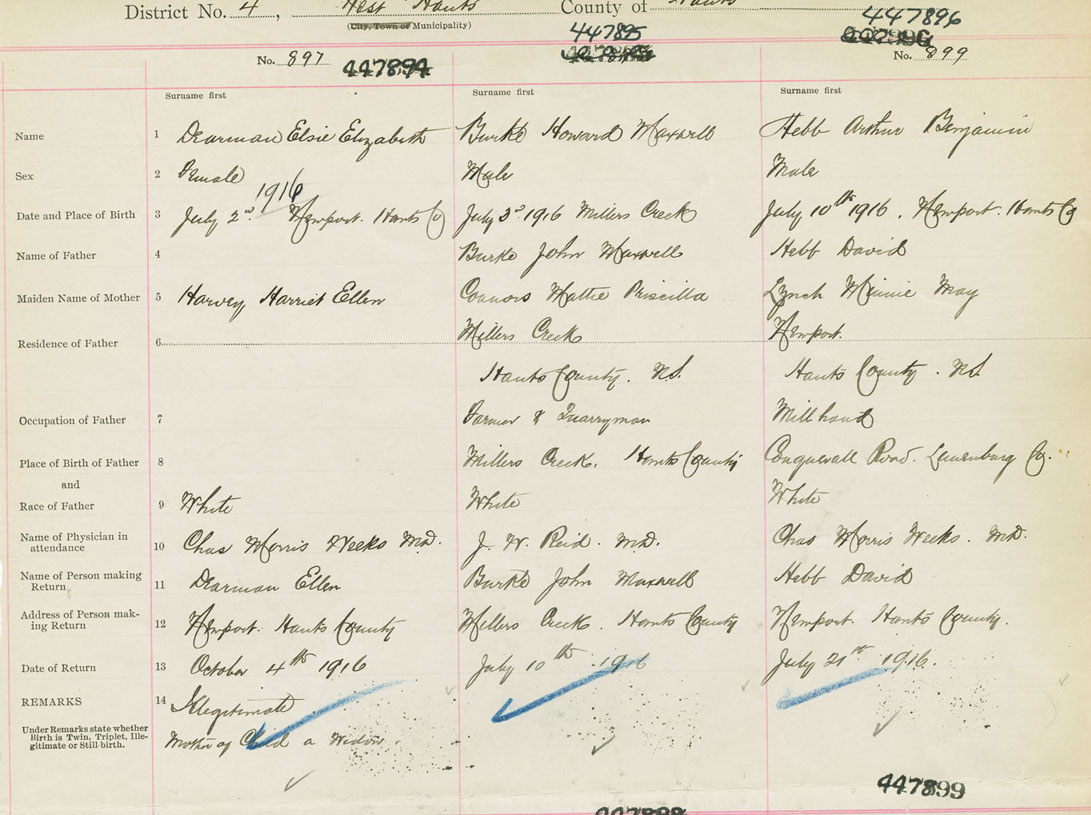 District No. 4, West Hants County of Hants
(City, Town or Municipality)
447895
447896
No. 897
447894
No. 899
Surname first Surname first Surname first
Name 1 Dearman Elsie Elizabeth Burke Howard Maxwell Hebb Arthur Benjamin
Sex 2 Female Male Male
1916
Date and Place of Birth 3 July 2nd Newport. Hants Co July 3d 1916 Millers Creek July 10th 1916. Newport. Hants Co
Name of Father 4 Burke John Maxwell Hebb David
Maiden Name of Mother 5 Harvey Harriet Ellen Connors Mattie Priscilla Lynch Minnie May
Residence of Father 6 Millers Creek Newport.
Hants County. N.S. Hants County. N.S.
Occupation of Father 7 Farmer & Quarryman Millhand
Place of Birth of Father 8 Millers Creek. Hants County Conquerall Road. Lunenburg Co.
and
Race of Father 9 White White White
Name of Physician in attendance 10 Chas Morris Weeks M.D. J. W. Reid. M.D. Chas Morris Weeks. M.D.
Name of Person making Return 11 Dearman Ellen Burke John Maxwell Hebb David
Address of Person making Return 12 Newport. Hants County Millers Creek. Hants County Newport. Hants County.
Date of Return 13 October 4th 1916 July 10th 1916 July 21st 1916.
REMARKS 14 Illegitimate
Under Remarks state whether Birth is Twin, Triplet, Illegitimate or Still birth.
Mother of Child a Widow
447899